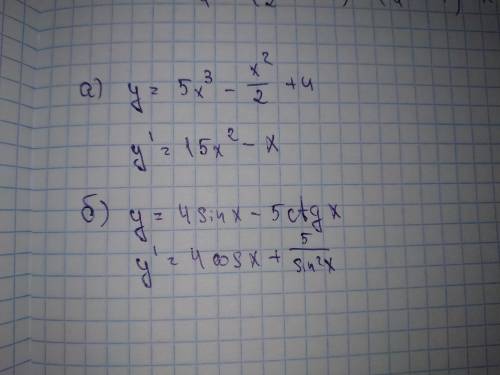 а) y = 5x³ - x²/2 + 4
y' = 15x² - x
б) y = 4 sin x - 5 ctg x
y' = 4 cos x + 5/sin²x